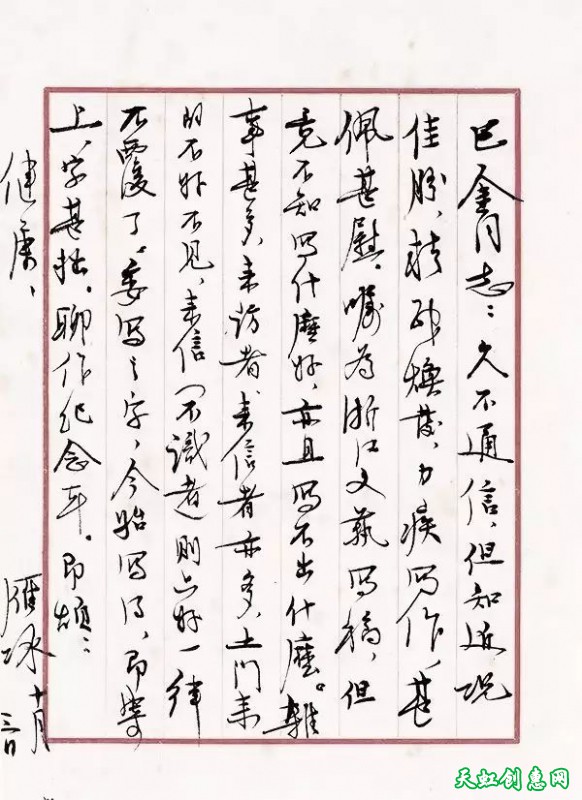 巴金同志：久不通信，但知近况
佳胜，精神焕发，力疾写作，甚
佩甚慰。嘱为浙江文艺写稿，但
竟不知写什麽好，亦且写不出什麽。雜
事甚多，来访者、来信者亦多，上门来
的不好不见，来信（不識者）则只好一律
不覆了。委写之字，今始写得，即寄
上，字甚拙。聊作纪念耳。即颂：
健康，
雁冰 十月
三日
天虹创意网